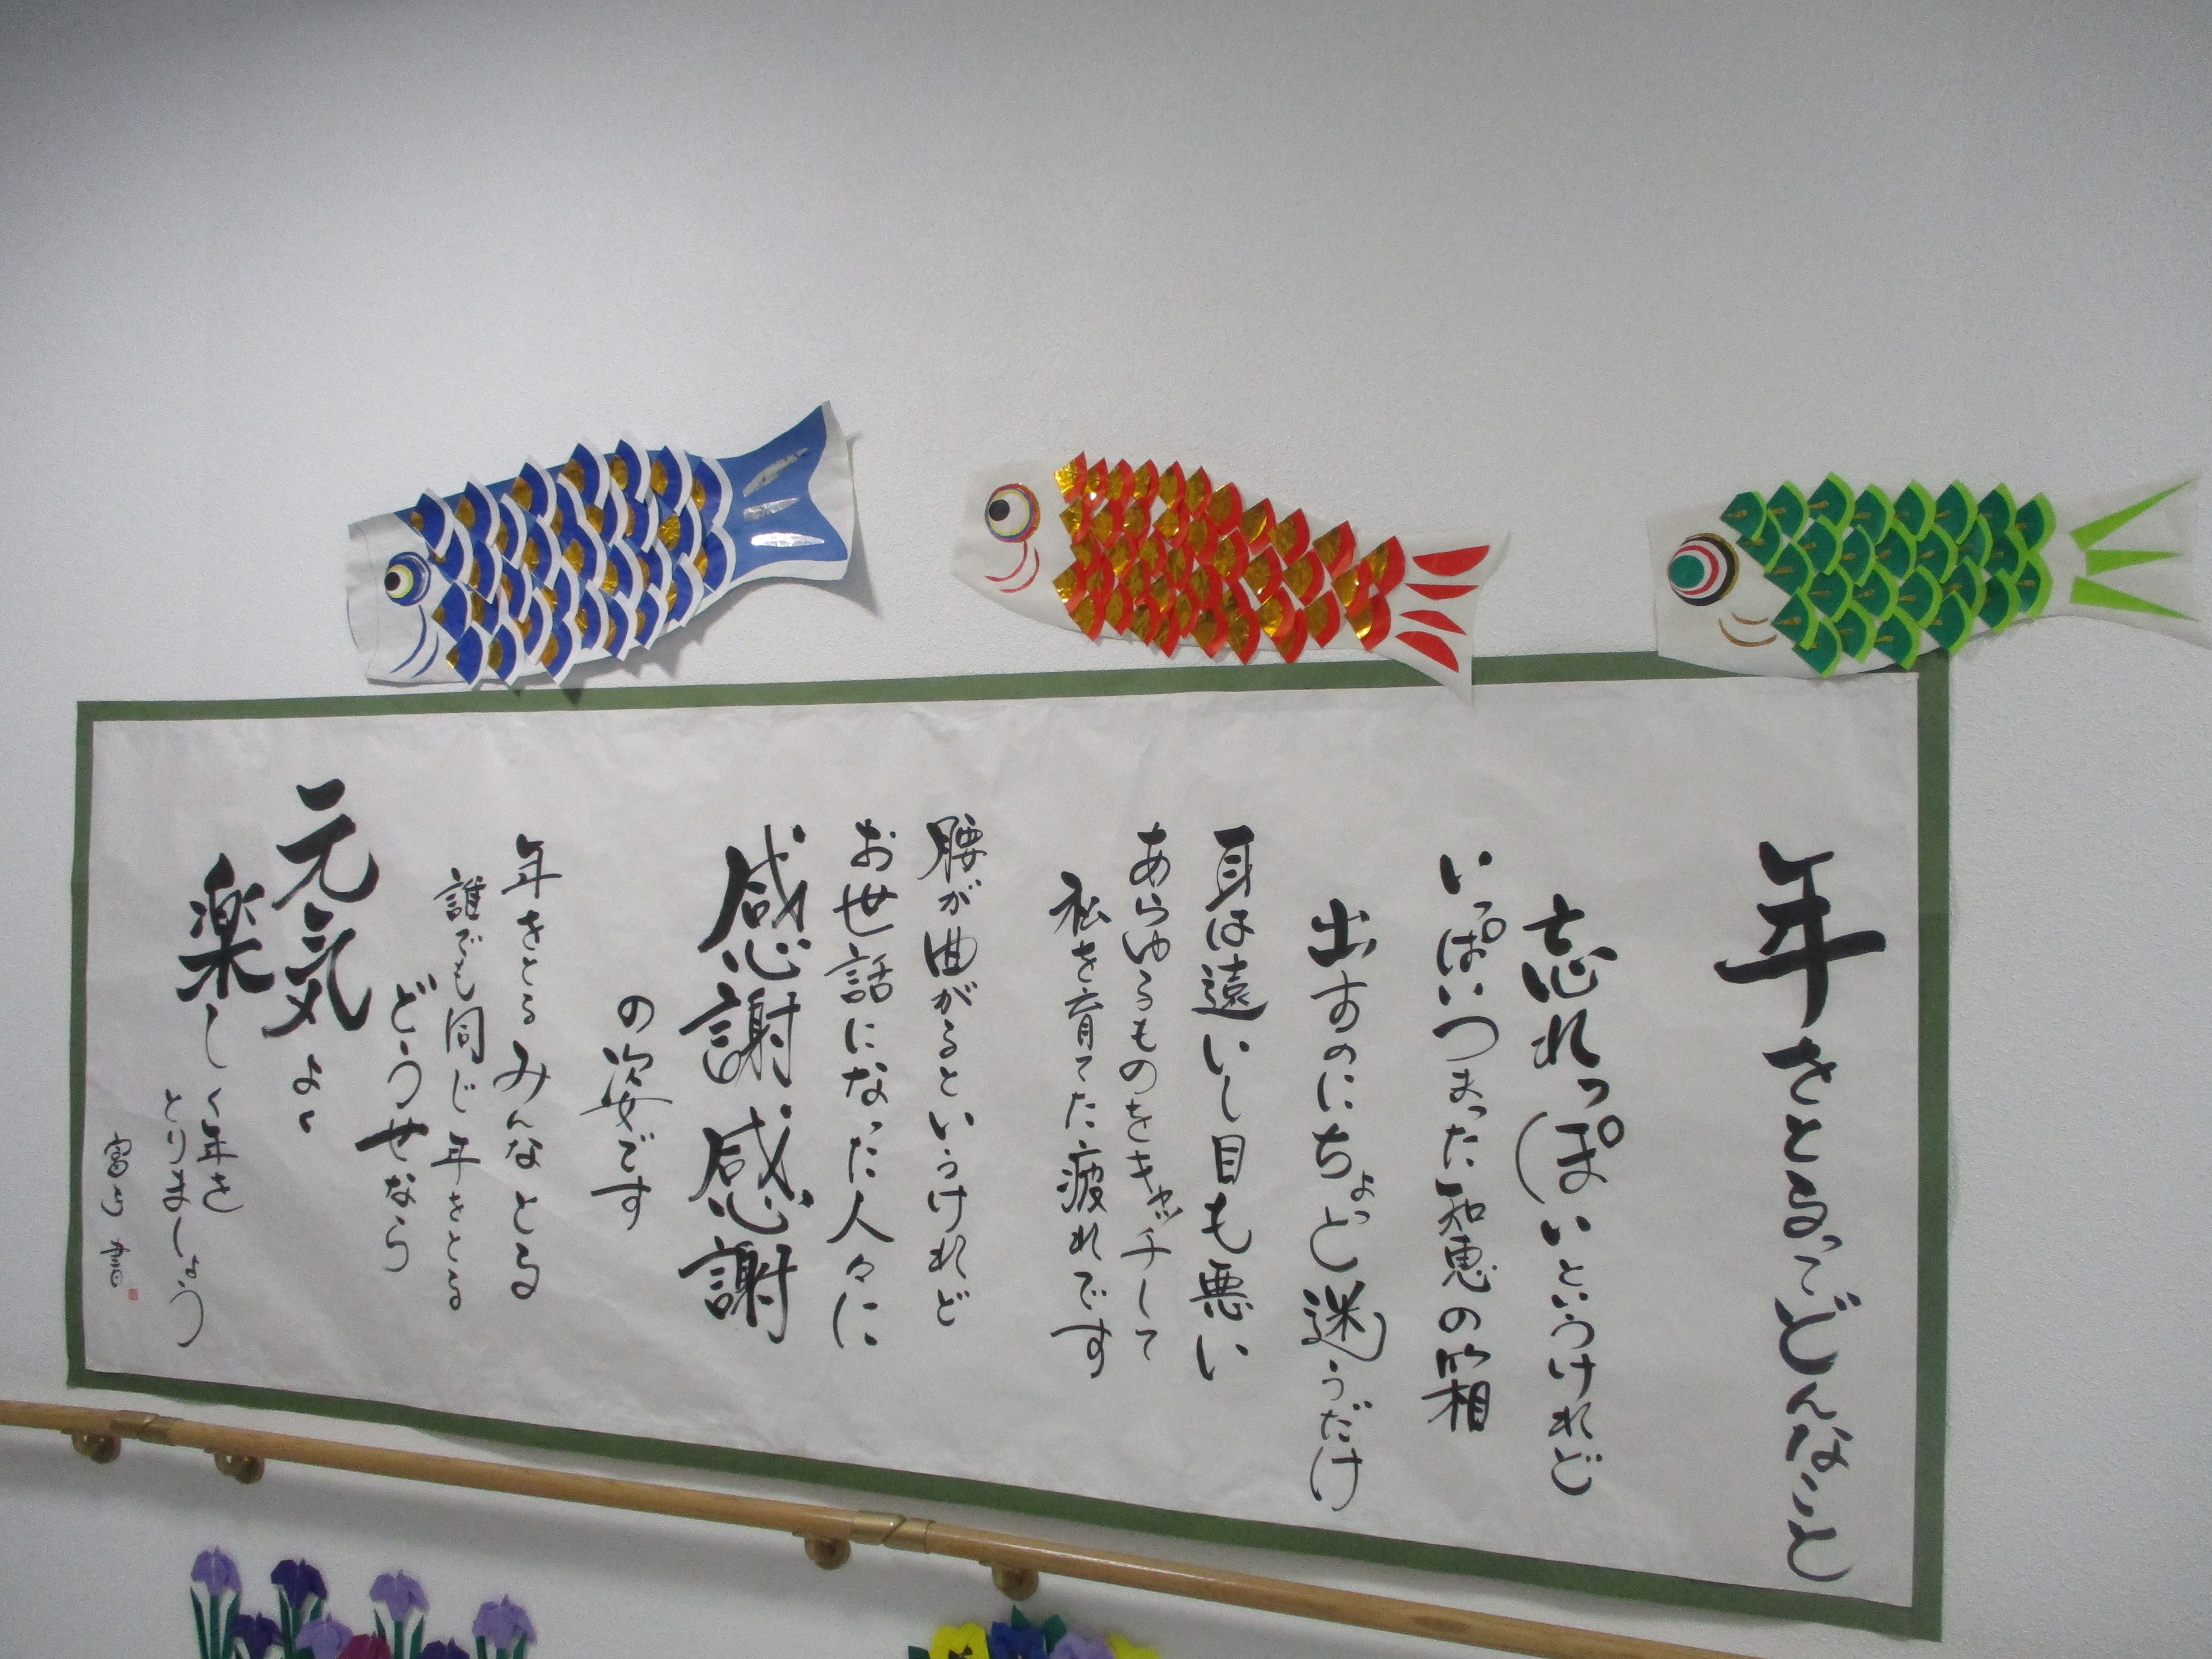 年をとるってどんなこと
忘れっぽいというけれど
いっぱいつまった知恵の箱
出すのにちょっと迷うだけ
耳は遠いし目も悪い
あらゆるものをキャッチして
私を育てた疲れです
腰が曲がるというけれど
お世話になった人々に
感謝感謝
の姿です
年をとるみんなとる
誰でも同じ年をとる
どうせなら
元気よく
楽しく年を
とりましょう
書